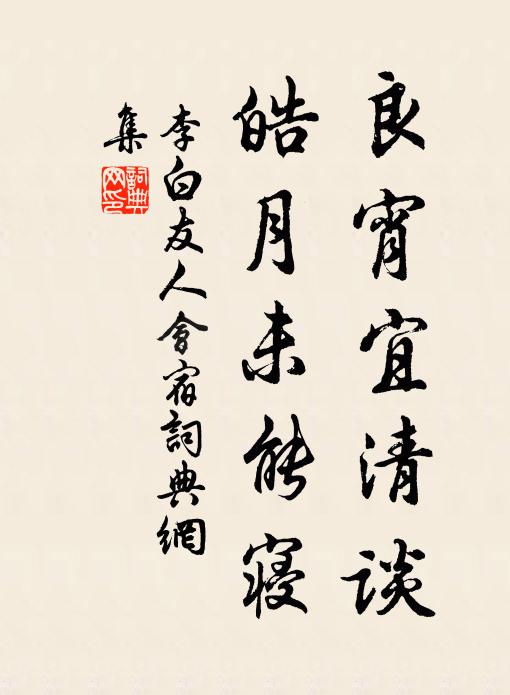 良宵宜清談
皓月未能寢
李白友人會宿詞典網
集
詞典
网印